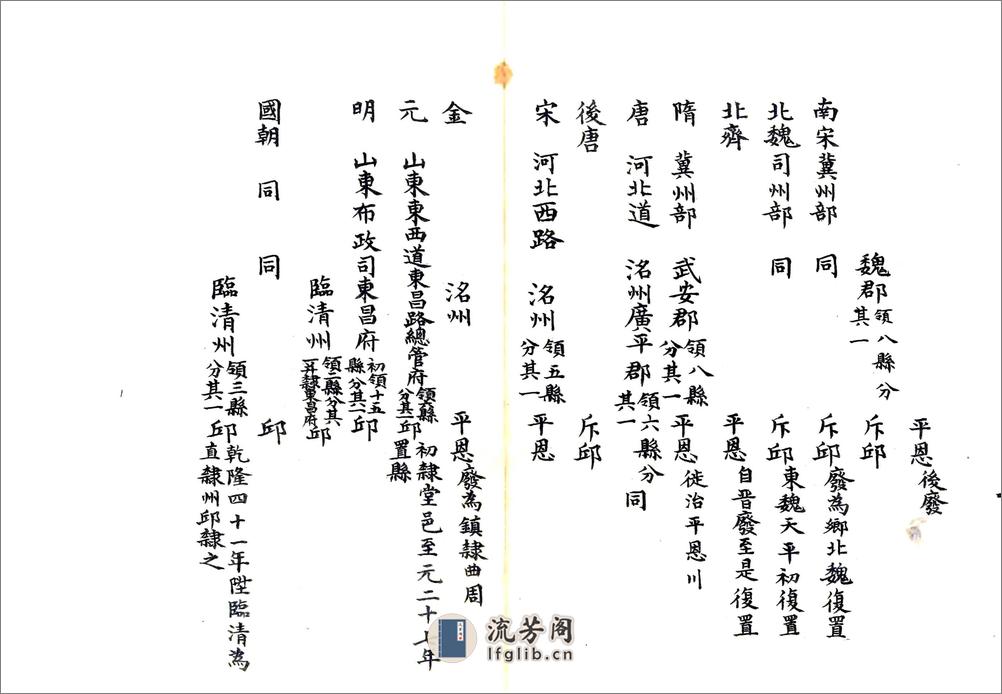 平恩後廢
魏郡領八縣分其一 斥邱
南宋冀州部 同 斥邱廢為鄉北魏復置
北魏司州部 同 斥邱東魏天平初復置
北齊 平恩自晉廢至是復置
隋 冀州部 武安郡領八縣分其一 平恩徙治平恩川
唐 河北道 洺州廣平郡領六縣分其一 同
後唐 斥邱
宋 河北西路 洺州領五縣分其一 平恩
金 洺州 平恩廢為鎮隸曲周
元 山東東西道東昌路總管府領六縣分其一 邱初隸堂邑至元二十七年置縣
明 山東布政司東昌府初領十五縣分其一 邱
臨清州領二縣分其一并隸東昌府 邱
國朝 同 同 邱
臨清州領三縣分其一 邱乾隆四十一年陞臨清為直隸州邱隸之
流芳阁
lfglib.cn